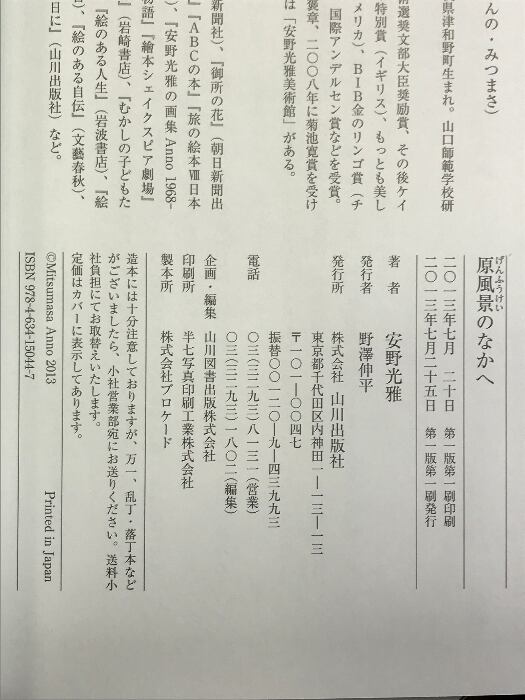 んの・みつまさ）
県津和野町生まれ。山口師範学校研
術選奨文部大臣奨励賞、その後ケイ
特別賞（イギリス）、もっとも美し
メリカ）、BIB金のリンゴ賞（チ
国際アンデルセン賞などを受賞。
褒章、二〇〇八年に菊池寛賞を受け
は「安野光雅美術館」がある。
新聞社）、『御所の花』（朝日新聞出
』『ABCの本』『旅の絵本Ⅷ日本
）、『安野光雅の画集 Anno 1968-
物語』『繪本シェイクスピア劇場』
』（岩崎書店）、『むかしの子どもた
『絵のある人生』（岩波書店）、『絵
）、『絵のある自伝』（文藝春秋）、
日に』（山川出版社）など。
げんふうけい
原風景のなかへ
二〇一三年七月 二十日 第一版第一刷印刷
二〇一三年七月二十五日 第一版第一刷発行
著 者 安野光雅
発行者 野澤伸平
発行所 株式会社 山川出版社
東京都千代田区内神田一―一三―一三
〒一〇一―〇〇四七
振替〇〇一二〇―九―四三九九三
電話 〇三（三二九三）八一三一（営業）
〇三（三二九三）一八〇二（編集）
企画・編集 山川図書出版株式会社
印刷所 半七写真印刷工業株式会社
製本所 株式会社ブロケード
造本には十分注意しておりますが、万一、乱丁・落丁本など
がございましたら、小社営業部宛にお送りください。送料小
社負担にてお取替えいたします。
定価はカバーに表示してあります。
©Mitsumasa Anno 2013 Printed in Japan
ISBN 978-4-634-15044-7